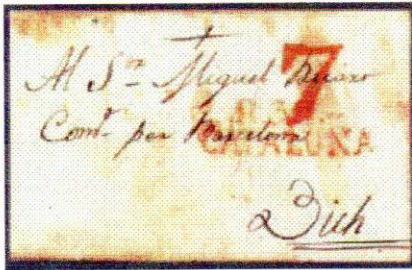 Al Sr. Miguel
7
Comte. por Barcelona
CATALUÑA
Vich